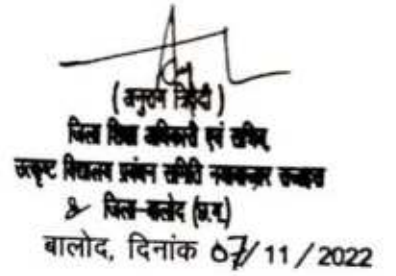 ( अनुराग त्रिवेदी )
जिला शिक्षा अधिकारी एवं सचिव,
उत्कृष्ट विद्यालय प्रबंधन समिति
जिला-बालोद (छ.ग.)
बालोद, दिनांक 07/ 11 / 2022